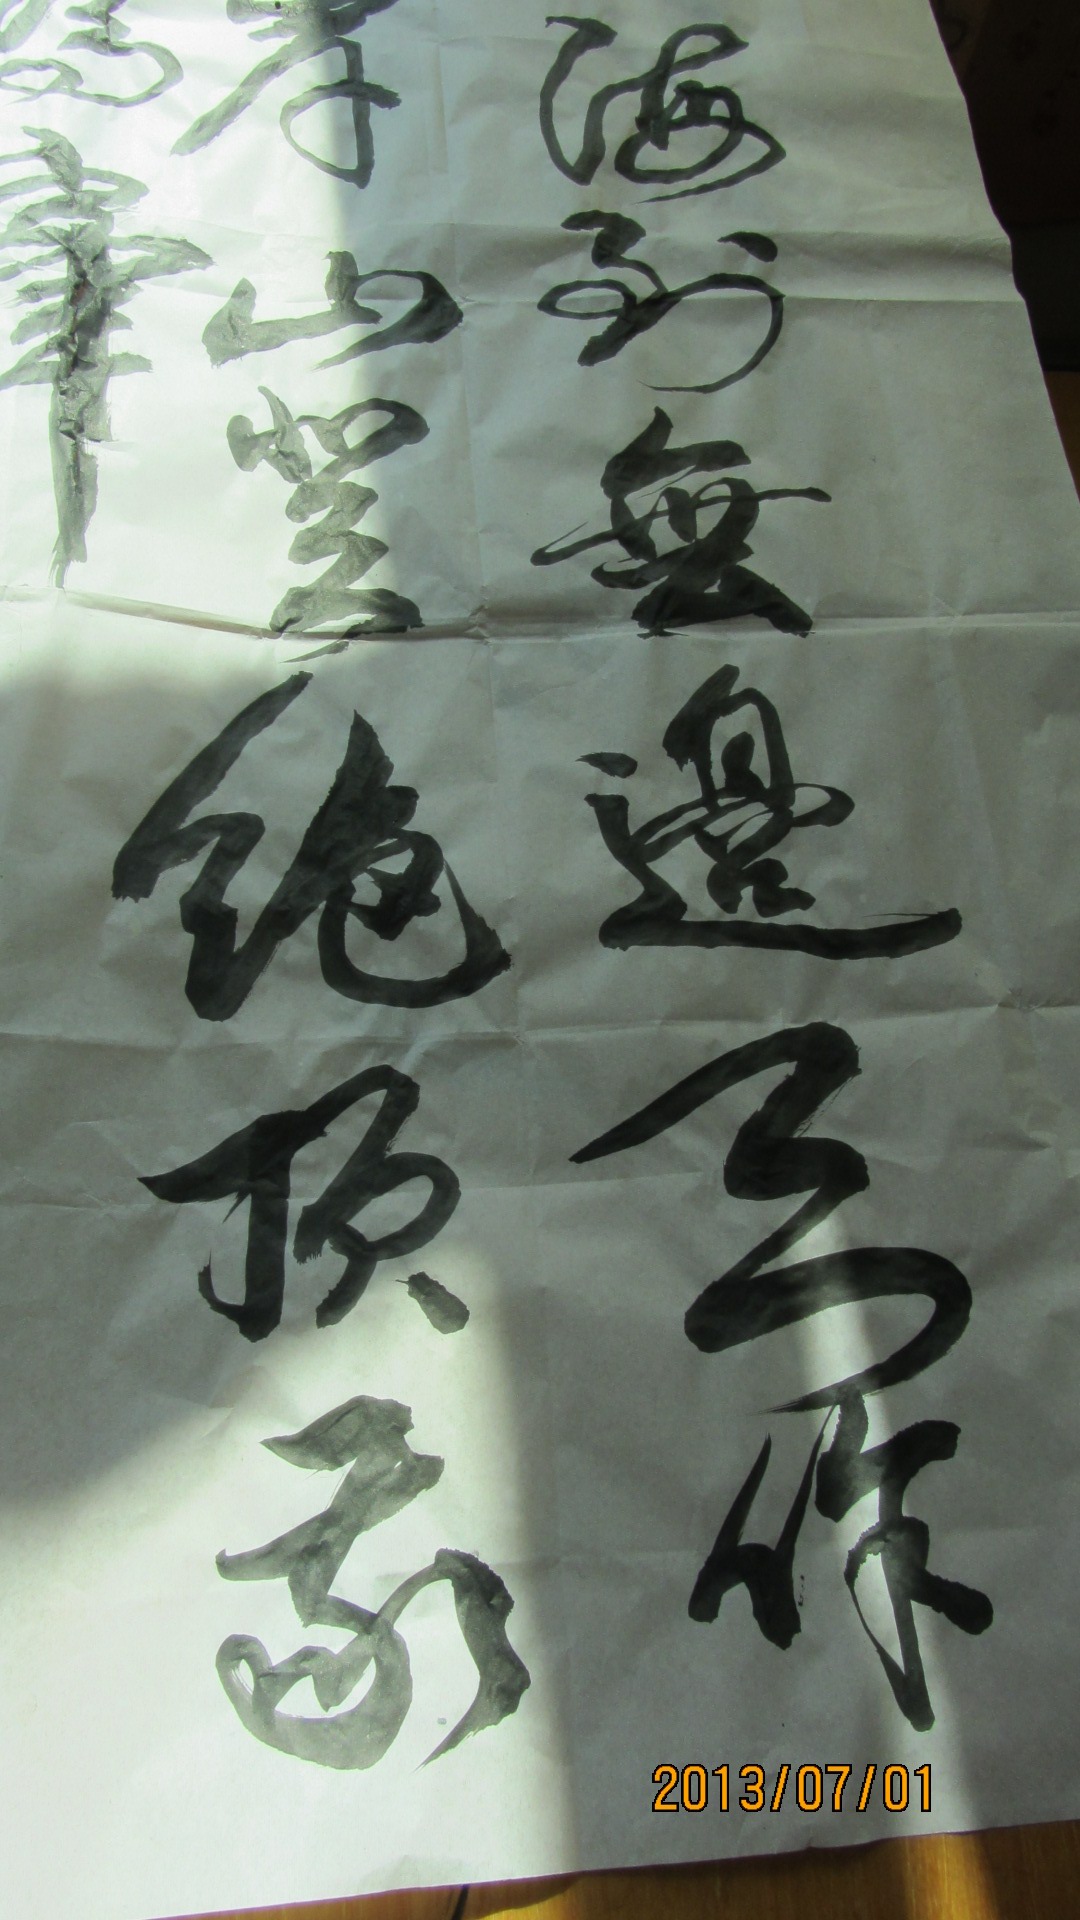 海到無邊天作
岸山登絶頂我
為峯
2013/07/01